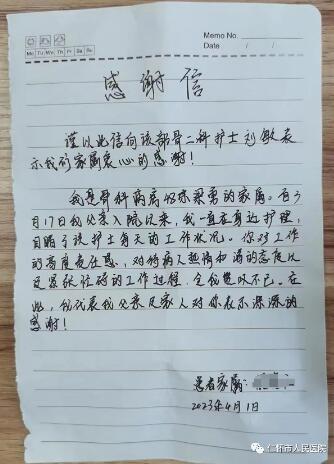 Memo No.
Date / /
Mo Tu We Th Fr Sa Su
感谢信
谨以此信向该部骨二科护士刘敏表
示我们家属衷心的感谢！
我是骨科病房 床 勇的家属。自3
月17日我父亲入院以来，我一直在身边护理，
目睹了该护士每天的工作状况。你对工作
的高度责任感，对待病人热情和蔼的态度以
及紧张忙碌的工作过程，令我感叹不已。在
此，我代表我父亲及家人对你表示深深的
感谢！
患者家属：
2023年4月1
仁怀市人民医院